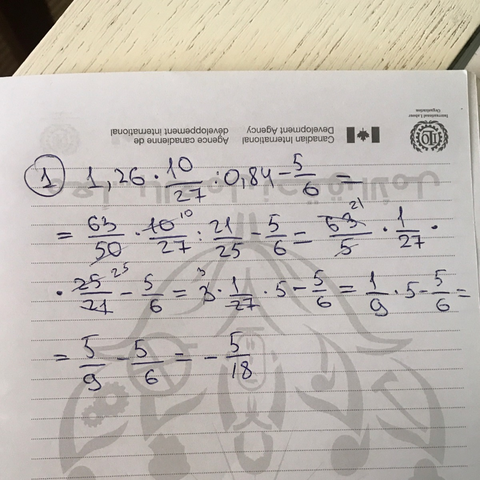 International Labour
Organization
Canadian International
Development Agency
Agence canadienne de
développement international
1 1,26 · 10/27 : 0,84 - 5/6 =
= 63/50 · 10/27 : 21/25 - 5/6 = 63/5 · 1/27 ·
· 25/21 - 5/6 = 3 · 1/27 · 5 - 5/6 = 1/9 · 5 - 5/6 =
= 5/9 - 5/6 = - 5/18